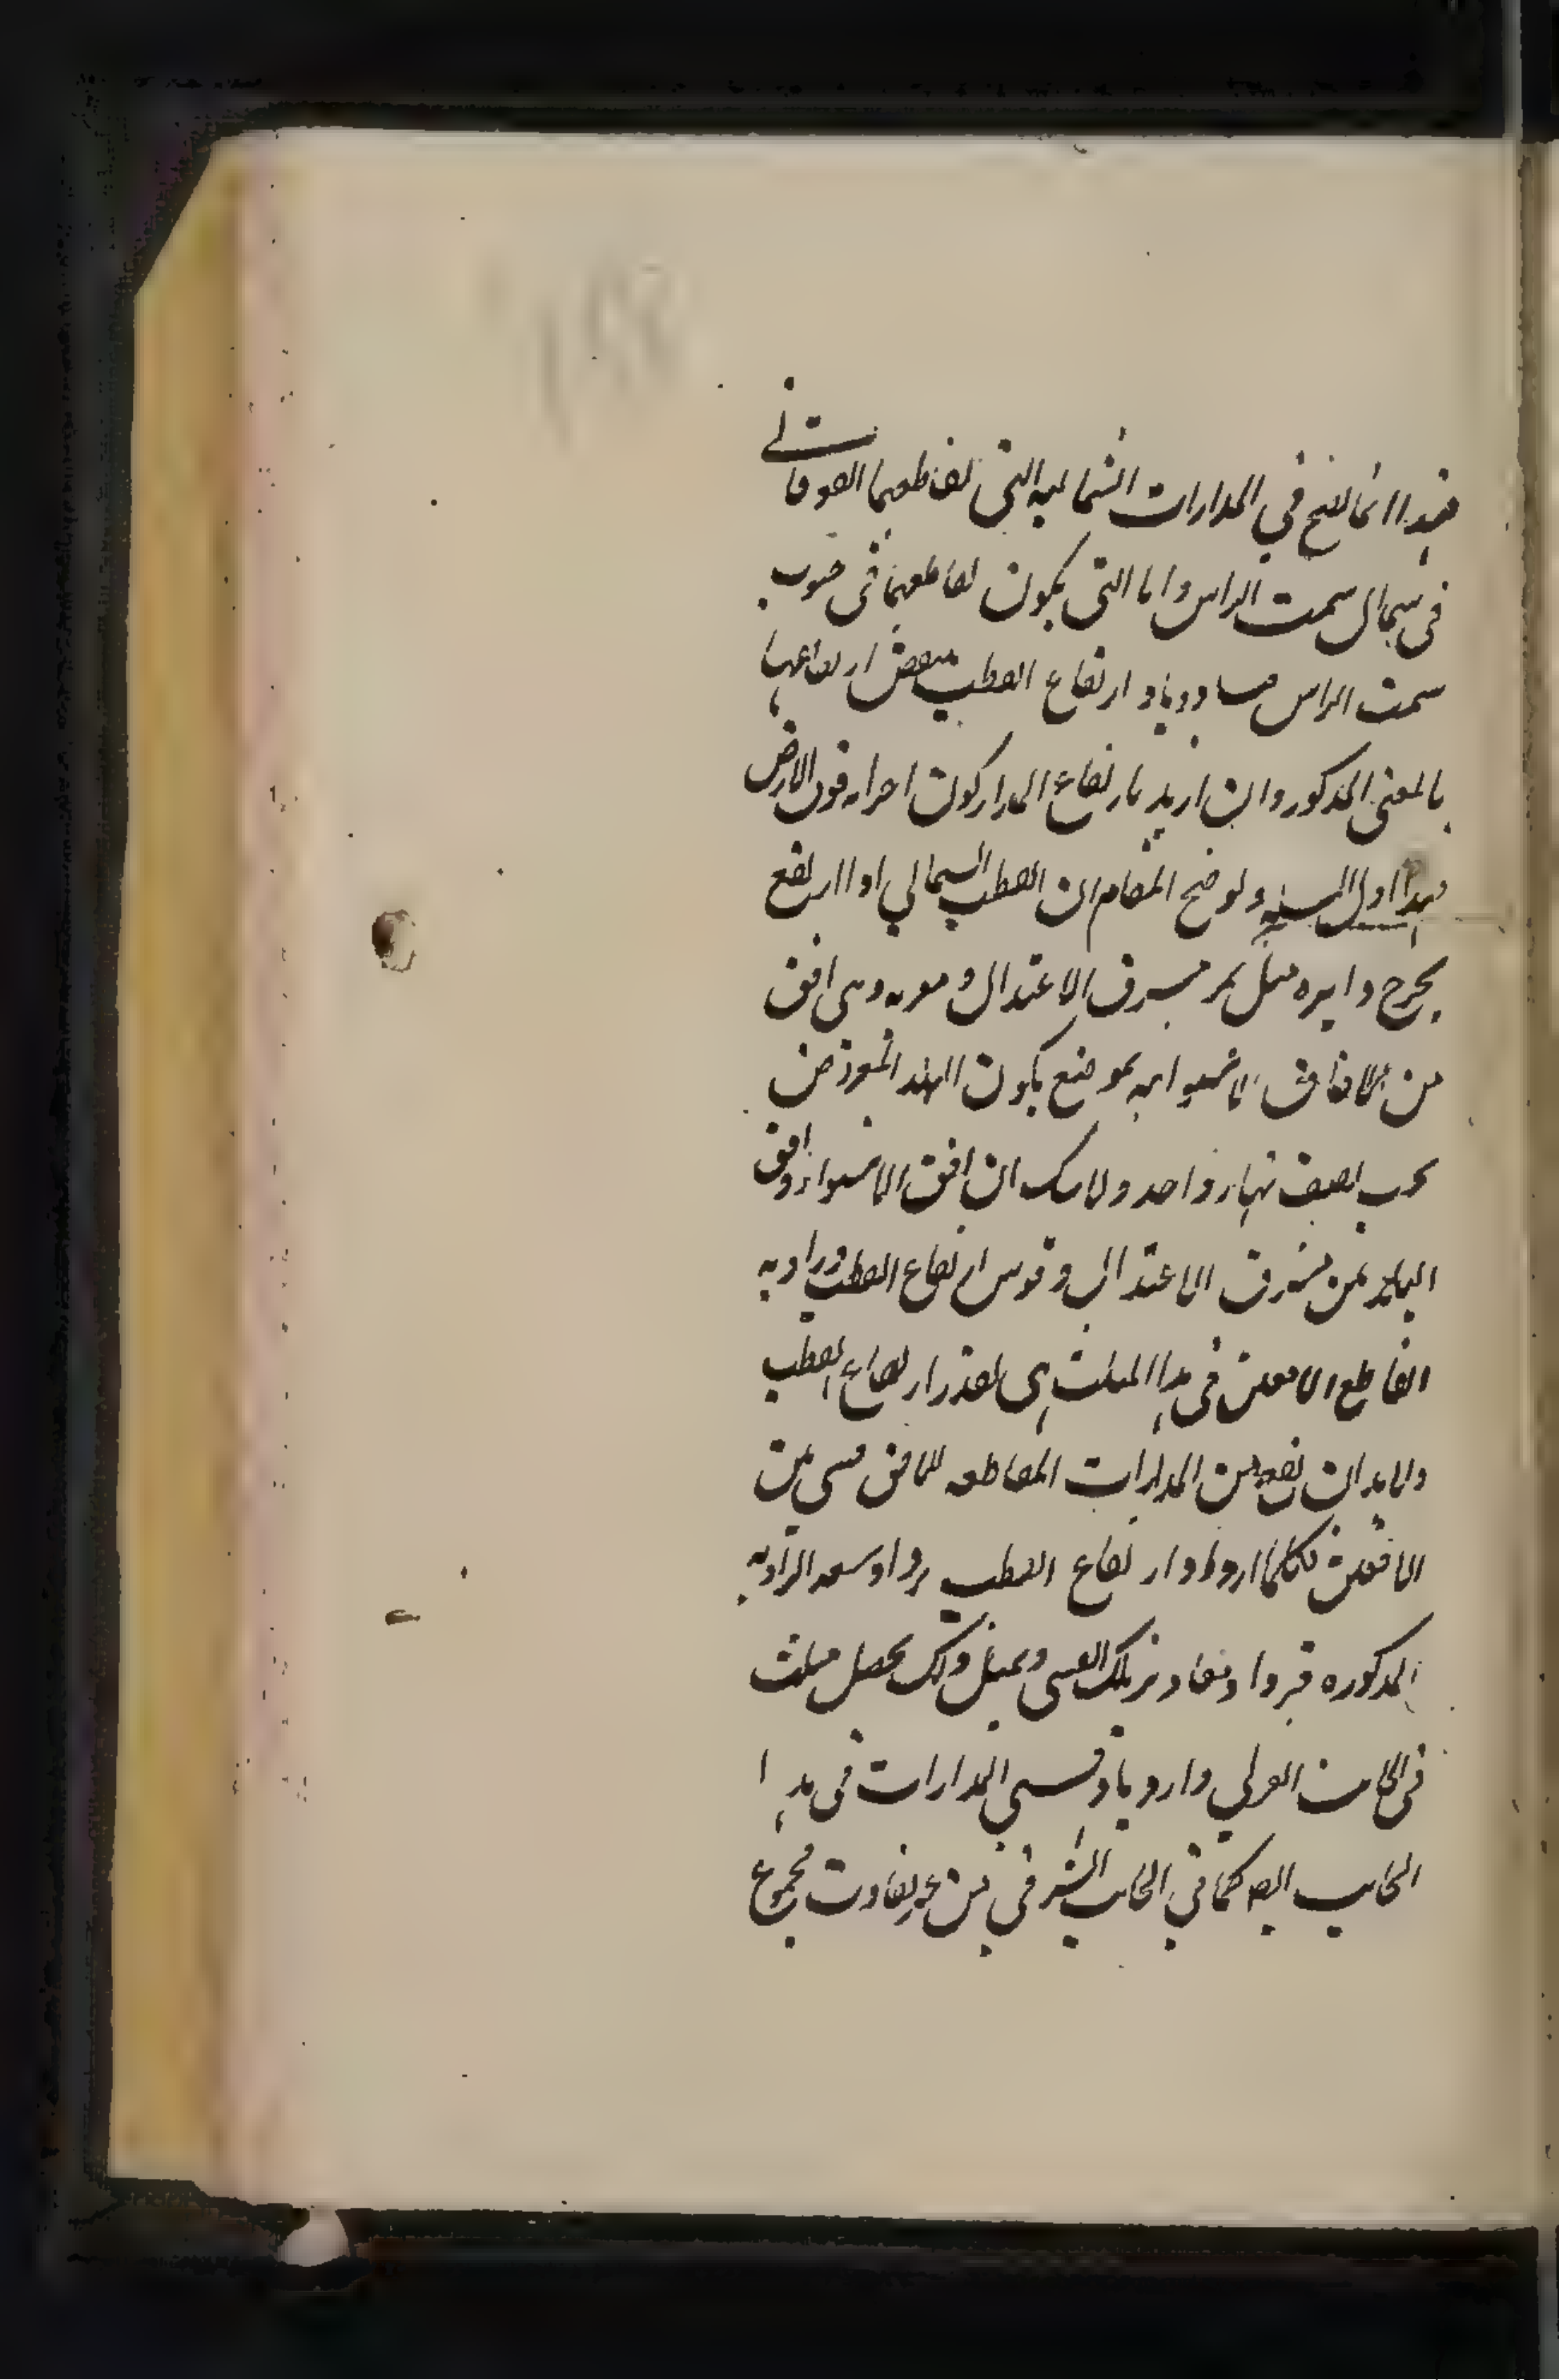 فهذا انما يصح في المدارات الشمالية التي تقاطعهما الفوقاني
في شمال سمت الراس واما التي يكون تقاطعهما في جنوب
سمت الراس بازدياد ارتفاع القطب ينقص ارتفاعها
بالمعنى المذكور وان اريد بارتفاع المدار كون اجزائه فوق الارض
فهذا اول المسئلة وتوضيح المقام ان القطب الشمالي اذا ارتفع
يخرج دايره ميل تمر بمشرق الاعتدال ومغربه وهي افق
من افاق الاستواية بموضع يكون البلد المفروض
تحت نصف نهار واحد ولا شك ان افق الاستواء وافق
البلد من مشرق الاعتدال وقوس ارتفاع القطب وزاوية
تقاطع الافقين في هذا المثلث هي بقدر ارتفاع القطب
ولا بد ان تقع من المدارات المقاطعة للافق قسي بين
الافقين فكلما ازداد ارتفاع القطب يزداد سعة الزاوية
المذكوره فيزداد مقادير تلك القسي وبمثل ذلك يحصل مثلث
في الجانب الغربي وازدياد قسي المدارات في هذا
الجانب ايضا كما في الجانب الشرقي من غير تفاوت فمجموع